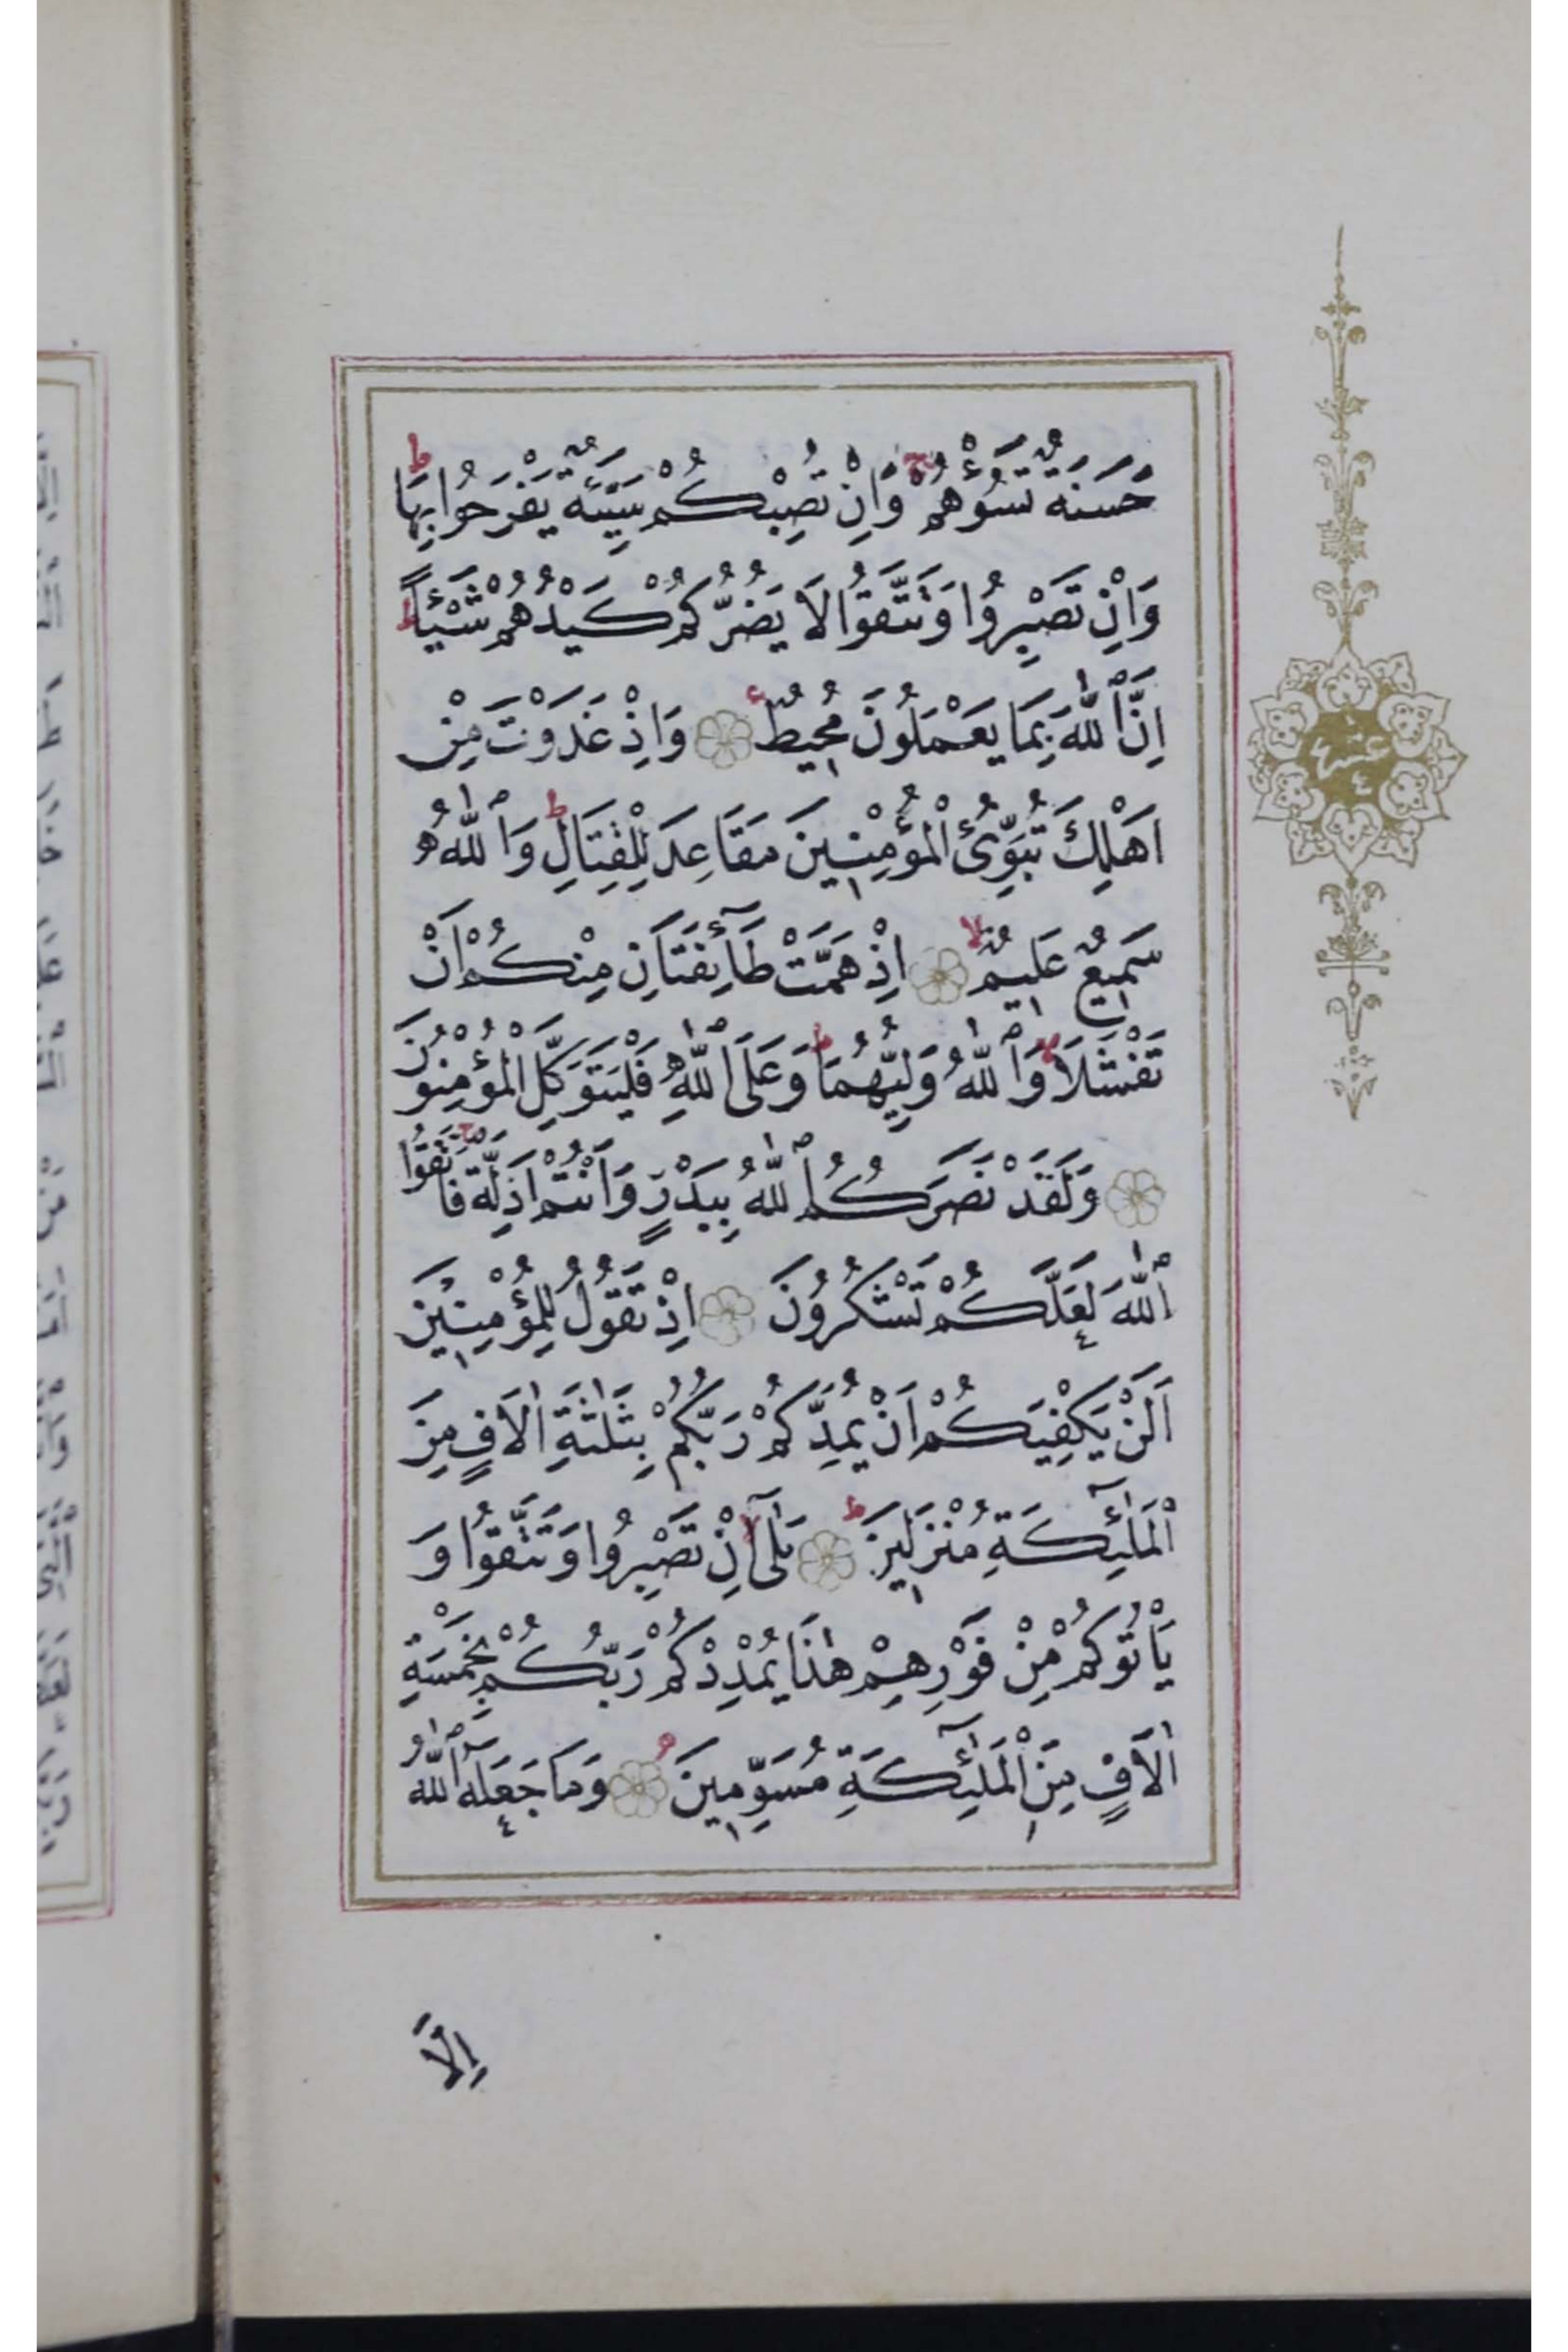 حَسَنَةٌ تَسُؤْهُمْ وَاِنْ تُصِبْكُمْ سَيِّئَةٌ يَفْرَحُوا بِهَا ط
وَاِنْ تَصْبِرُوا وَتَتَّقُوا لَا يَضُرُّكُمْ كَيْدُهُمْ شَيْئًا ط
اِنَّ ٱللّٰهَ بِمَا يَعْمَلُونَ مُحِيطٌ ع وَاِذْ غَدَوْتَ مِنْ
اَهْلِكَ تُبَوِّئُ الْمُؤْمِنِينَ مَقَاعِدَ لِلْقِتَالِ ط وَٱللّٰهُ
سَمِيعٌ عَلِيمٌ لا اِذْ هَمَّتْ طَٓائِفَتَانِ مِنْكُمْ اَنْ
تَفْشَلَا لا وَٱللّٰهُ وَلِيُّهُمَا ط وَعَلَى ٱللّٰهِ فَلْيَتَوَكَّلِ الْمُؤْمِنُونَ
وَلَقَدْ نَصَرَكُمُ ٱللّٰهُ بِبَدْرٍ وَاَنْتُمْ اَذِلَّةٌ ج فَاتَّقُوا
ٱللّٰهَ لَعَلَّكُمْ تَشْكُرُونَ اِذْ تَقُولُ لِلْمُؤْمِنِينَ
اَلَنْ يَكْفِيَكُمْ اَنْ يُمِدَّكُمْ رَبُّكُمْ بِثَلٰثَةِ اٰلَافٍ مِنَ
الْمَلٰٓئِكَةِ مُنْزَلِينَ ط بَلٰٓى لا اِنْ تَصْبِرُوا وَتَتَّقُوا وَ
يَأْتُوكُمْ مِنْ فَوْرِهِمْ هٰذَا يُمْدِدْكُمْ رَبُّكُمْ بِخَمْسَةِ
اٰلَافٍ مِنَ الْمَلٰٓئِكَةِ مُسَوِّمِينَ وَمَا جَعَلَهُ ٱللّٰهُ
اِلَّا
عشر